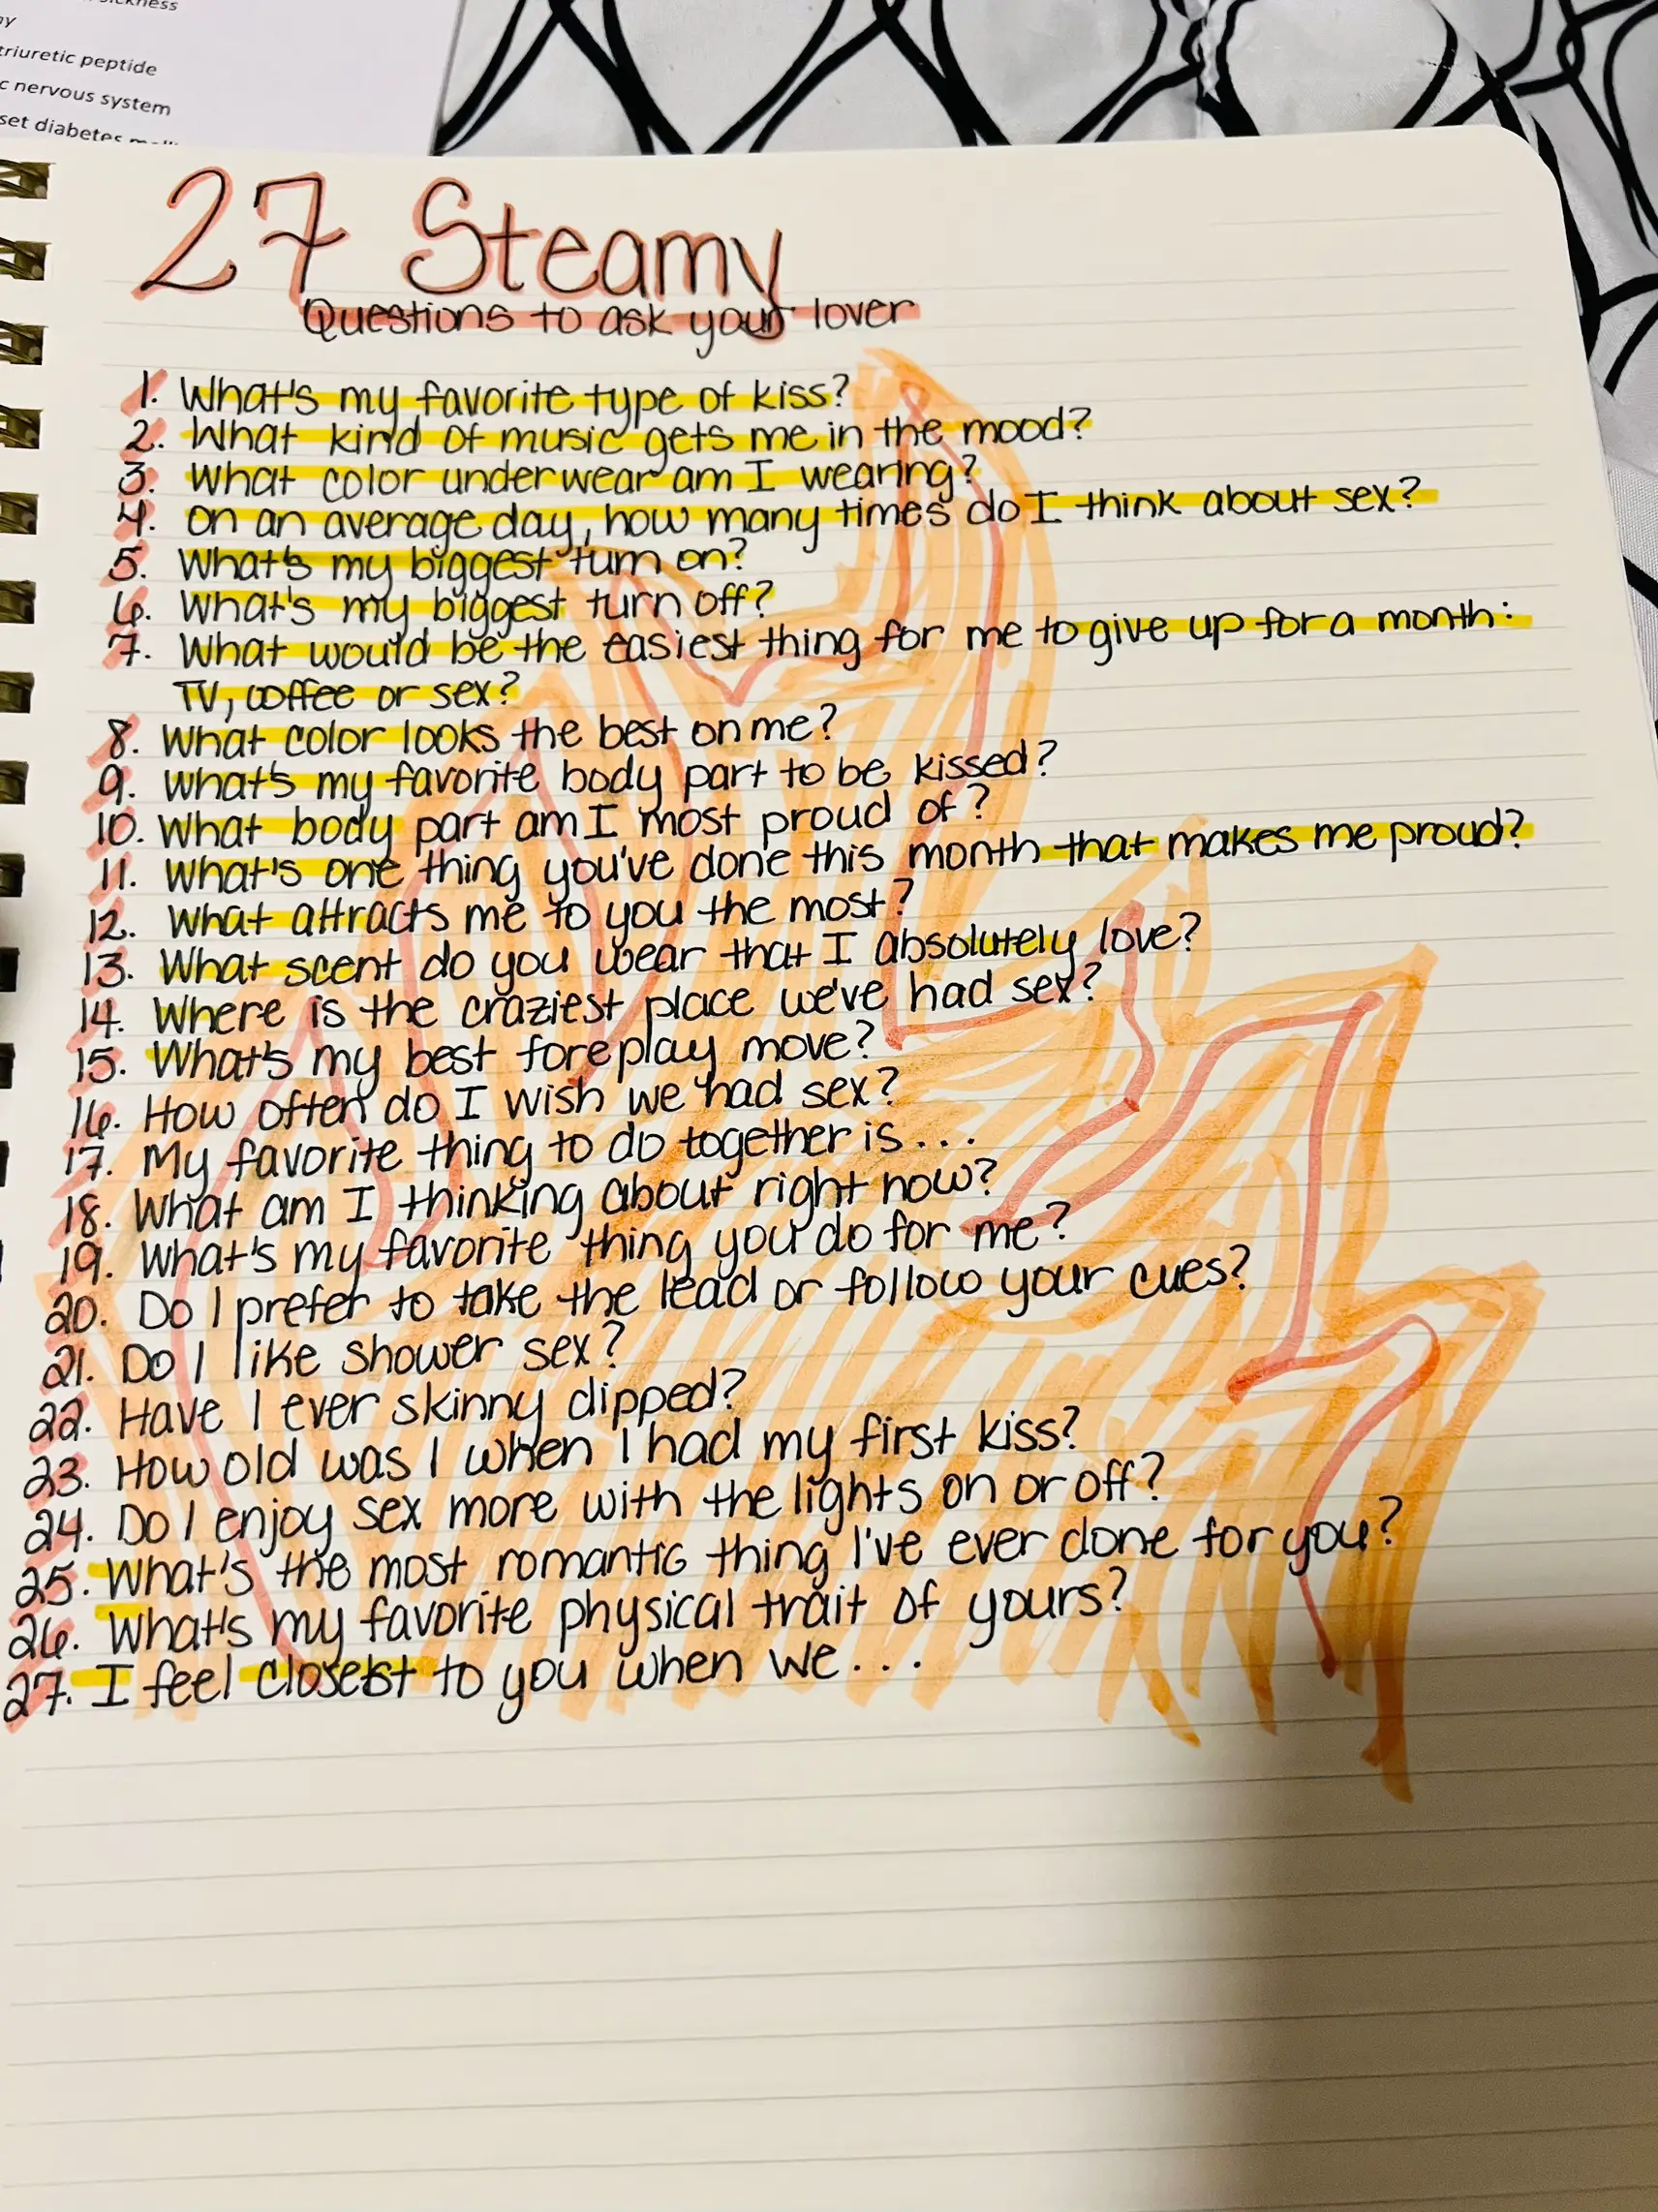 triuretic peptide
c nervous system
set diabetes
27 Steamy
Questions to ask your lover
1. What's my favorite type of kiss?
2. What kind of music gets me in the mood?
3. What color underwear am I wearing?
4. on an average day, how many times do I think about sex?
5. What's my biggest turn on?
6. What's my biggest turn off?
7. What would be the easiest thing for me to give up for a month:
TV, coffee or sex?
8. What color looks the best on me?
9. What's my favorite body part to be kissed?
10. What body part am I most proud of?
11. What's one thing you've done this month that makes me proud?
12. What attracts me to you the most?
13. What scent do you wear that I absolutely love?
14. Where is the craziest place we've had sex?
15. What's my best foreplay move?
16. How often do I wish we had sex?
17. My favorite thing to do together is...
18. What am I thinking about right now?
19. What's my favorite thing you do for me?
20. Do I prefer to take the lead or follow your cues?
21. Do I like shower sex?
22. Have I ever skinny dipped?
23. How old was I when I had my first kiss?
24. Do I enjoy sex more with the lights on or off?
25. What's the most romantic thing I've ever done for you?
26. What's my favorite physical trait of yours?
27. I feel closest to you when we...